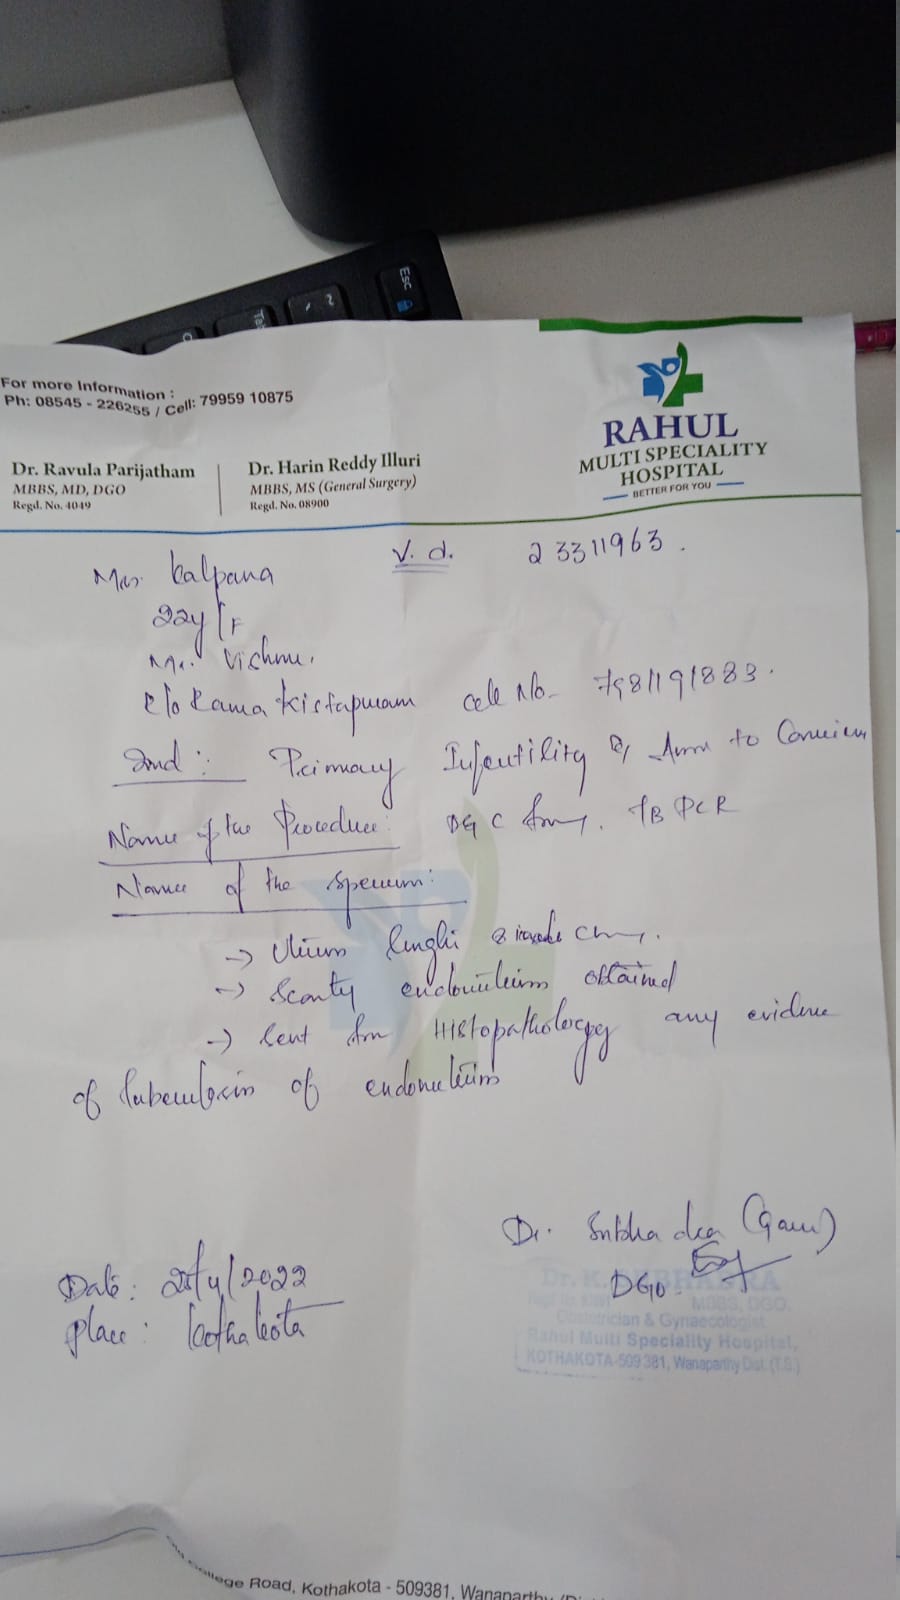 Esc
For more Information :
Ph: 08545 - 226255 / Cell: 79959 10875
RAHUL
MULTI SPECIALITY
HOSPITAL
BETTER FOR YOU
Dr. Ravula Parijatham
MBBS, MD, DGO
Regd. No. 4049
Dr. Harin Reddy Illuri
MBBS, MS (General Surgery)
Regd. No. 08900
V. d. 23311963.
Mrs. Kalpana
22y/F
Mr. Vishnu.
R/o Rama Kistapuram Cell No- 7981191883.
Ind: Primary Infertility
Name of the Procedure: D&C TB PCR
Name of the Specimen:
→ Uterus
→ Scanty endometrium obtained
→ Sent for Histopathology any evidence
of tuberculosis of endometrium
Dr. Subhadra
DGO
Date: 25/4/2022
Place: Kothakota
MBBS, DGO,
Obstetrician & Gynaecologist
Rahul Multi Speciality Hospital,
KOTHAKOTA-509 381, Wanaparthy Dist. (T.S.)
College Road, Kothakota - 509381, Wanaparthy